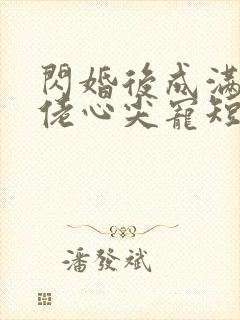 閃婚後成滿
佬心尖寵短
潘發斌